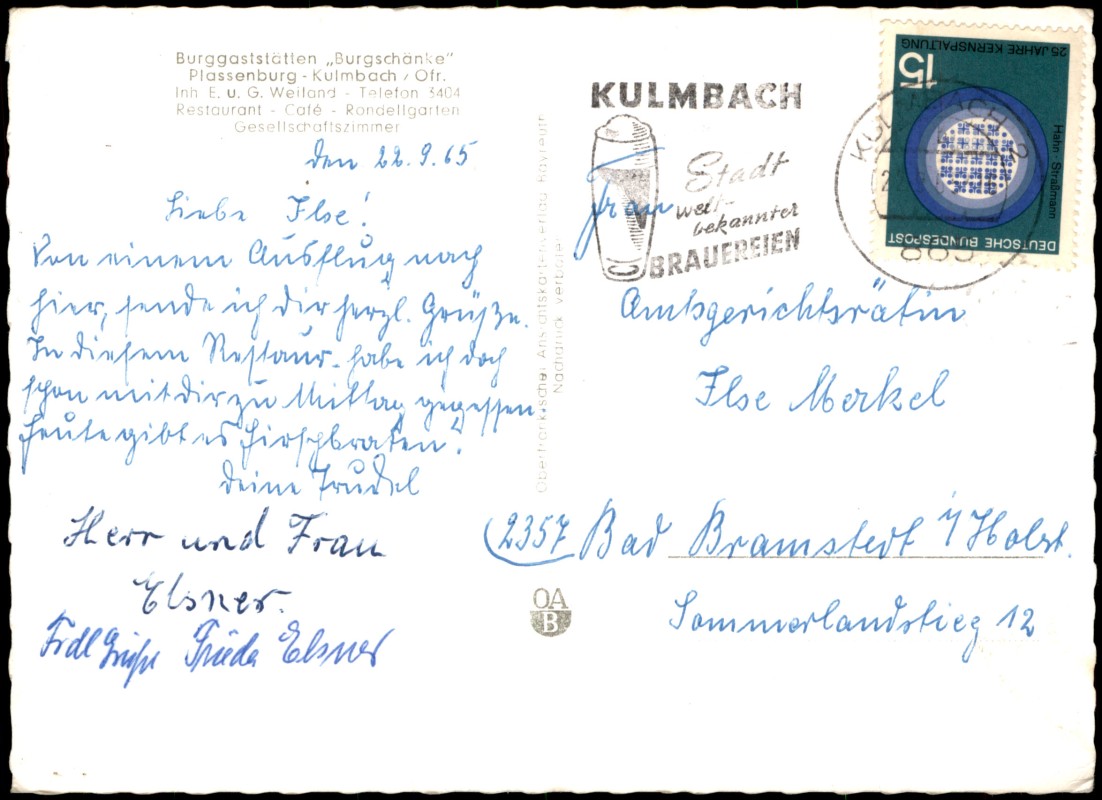 Burggaststätten „Burgschänke"
Plassenburg - Kulmbach / Ofr.
Inh. E. u. G. Weiland - Telefon 3404
Restaurant - Café - Rondellgarten
Gesellschaftszimmer
den 22.9.65
Liebe Ilse!
Von einem Ausflug nach
hier, sende ich dir herzl. Grüße.
In diesem Restaur. habe ich doch
schon mit dir zu Mittag gegessen
heute gibt es Hirschbraten!
deine Trudel
Herr und Frau
Elsner.
Frdl Grüße Frieda Elsner
Oberfränkischer Ansichtskartenverlag Bayreuth
Nachdruck verboten
KULMBACH
Stadt
welt-
bekannter
BRAUEREIEN
KULMBACH 2
865
25 JAHRE KERNSPALTUNG
15
Hahn - Straßmann
DEUTSCHE BUNDESPOST
Frau
Amtsgerichtsrätin
Ilse Merkel
(2357 Bad Bramstedt i/Holst.
Sommerlandstieg 12
OA
B